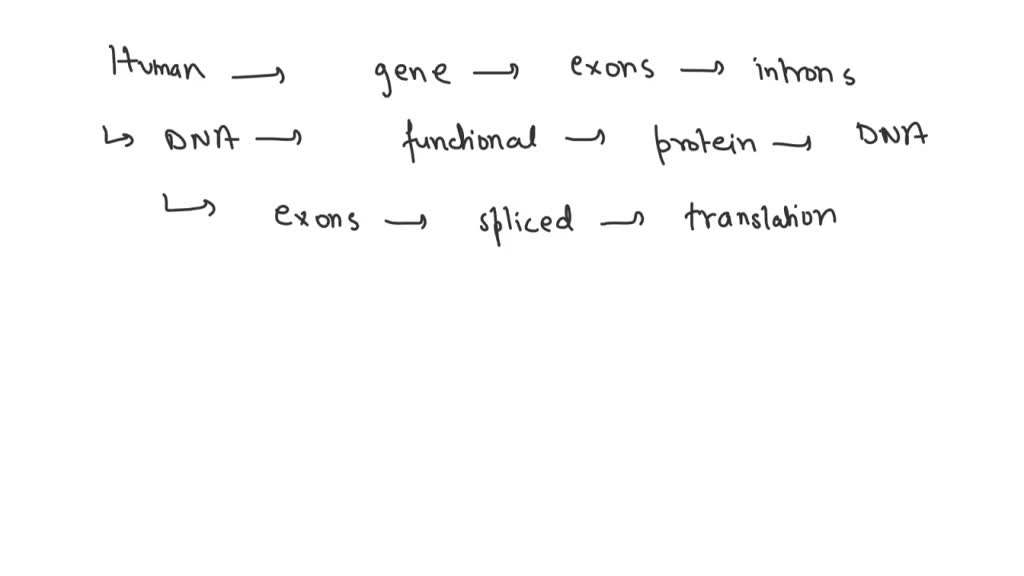 Human → gene → exons → introns
↳ DNA → functional → protein → DNA
↳ exons → spliced → translation